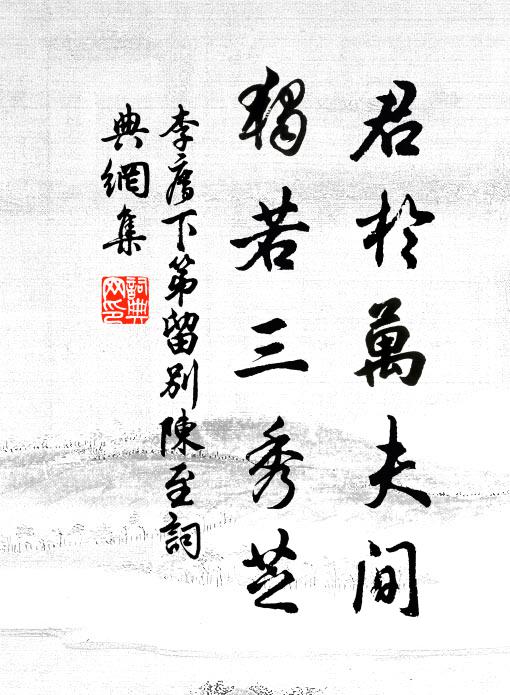 君於萬夫间
獨若三秀芝
李廌下第留別陳至詞
典網集
詞典
网印